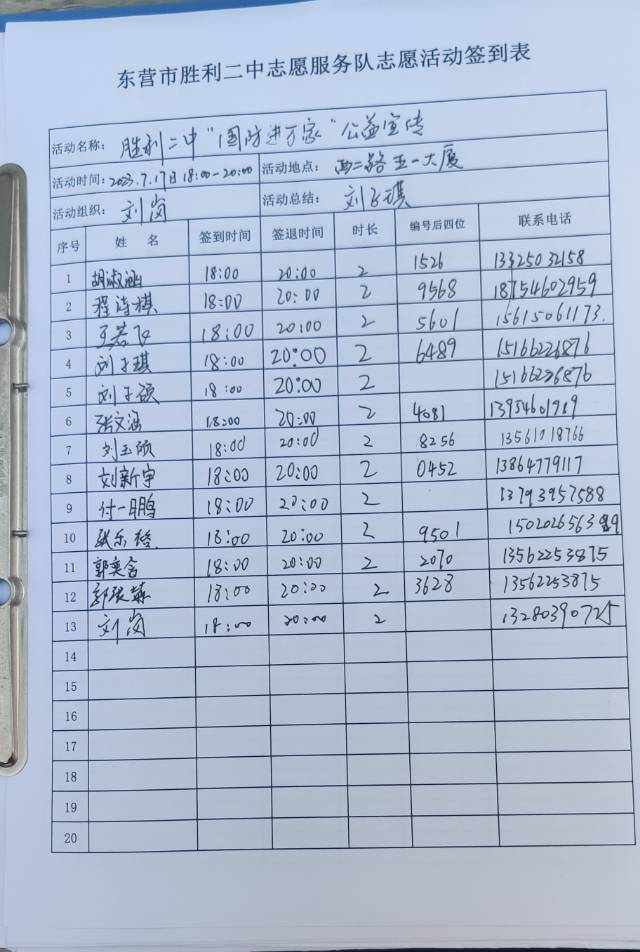 东营市胜利二中志愿服务队志愿活动签到表
活动名称: 胜利二中"国防进万家"公益宣传
活动时间: 2023.7.17日 18:00-20:00 活动地点: 西二路五一大厦
活动组织: 刘岗 活动总结: 刘子琪
序号 姓 名 签到时间 签退时间 时长 编号后四位 联系电话
1 胡淑涵 18:00 20:00 2 1526 13325032158
2 程诗棋 18:00 20:00 2 9568 18754602959
3 王若飞 18:00 20:00 2 5601 15615061173
4 刘子琪 18:00 20:00 2 6489 15166226876
5 刘子硕 18:00 20:00 2 15166226876
6 张文涵 18:00 20:00 2 4081
7 刘玉硕 18:00 20:00 2 8256 13561018766
8 刘新宇 18:00 20:00 2 0452 13864779117
9 付一鹏 18:00 20:00 2 13793957588
10 18:00 20:00 2 9501
11 郭奕含 18:00 20:00 2 2070 13562253875
12 18:00 20:00 2 3628 13562253875
13 刘岗 18:00 20:00 2 13280390725
14
15
16
17
18
19
20